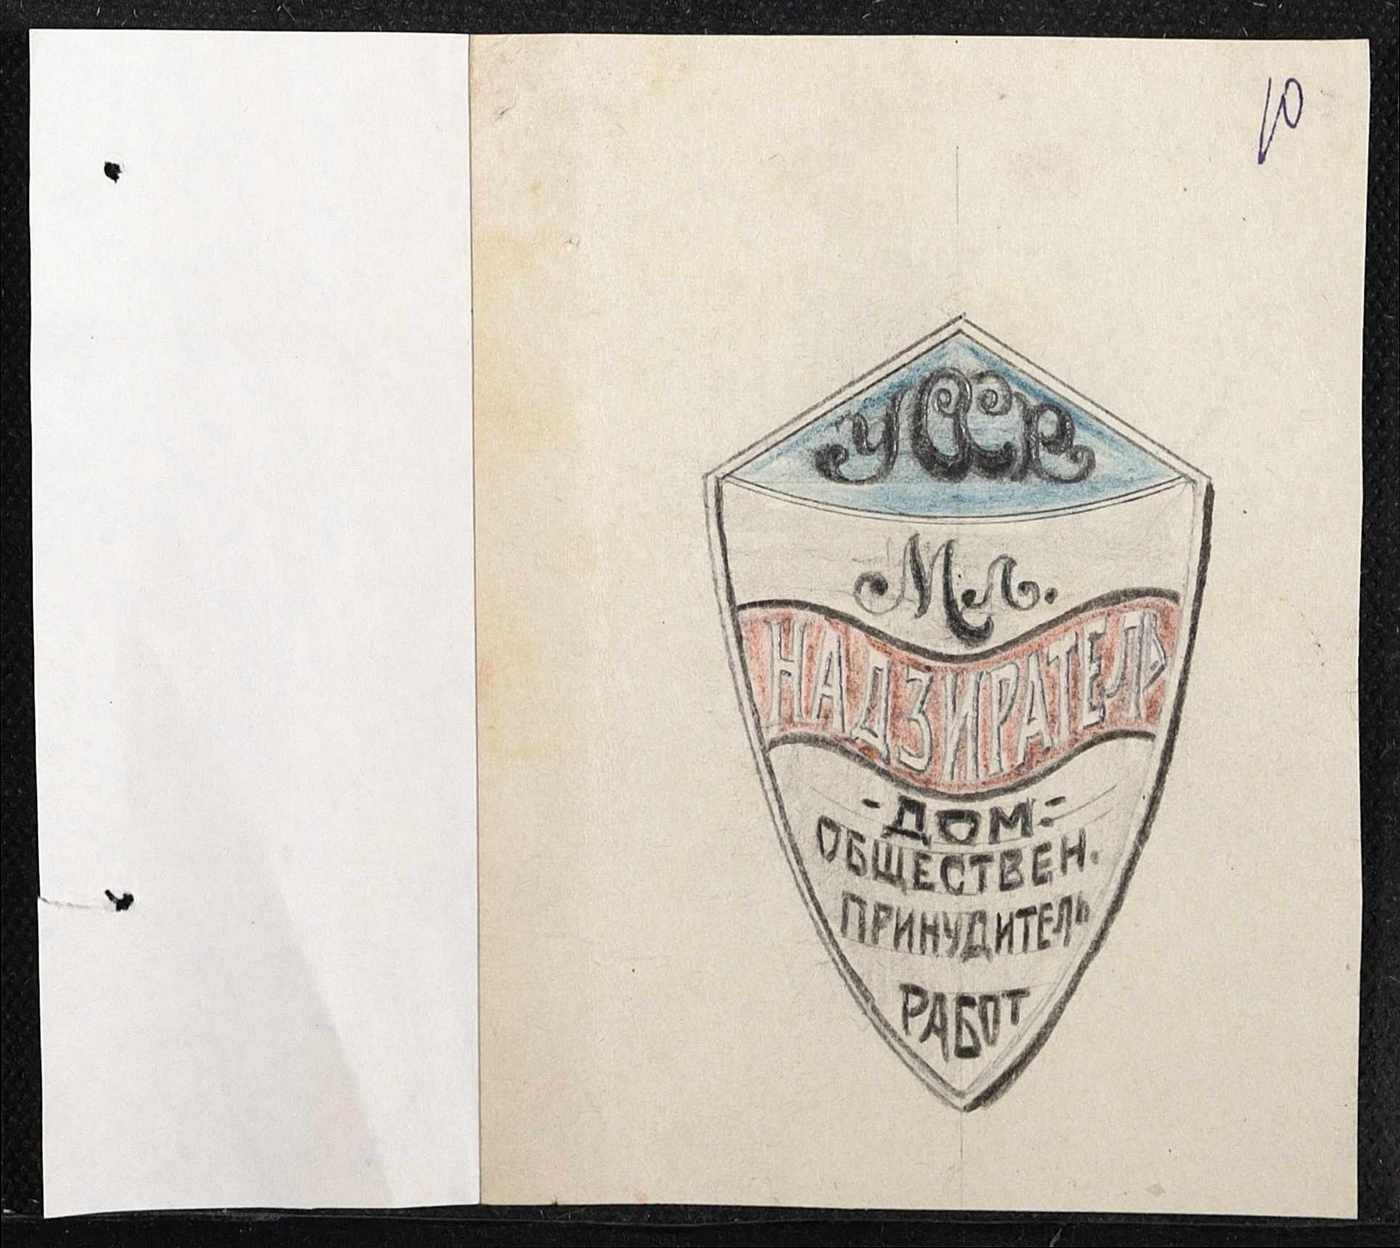 10
УССР
Мл.
НАДЗИРАТЕЛЬ
- ДОМ -
ОБЩЕСТВЕН.
ПРИНУДИТЕЛЬ
РАБОТ